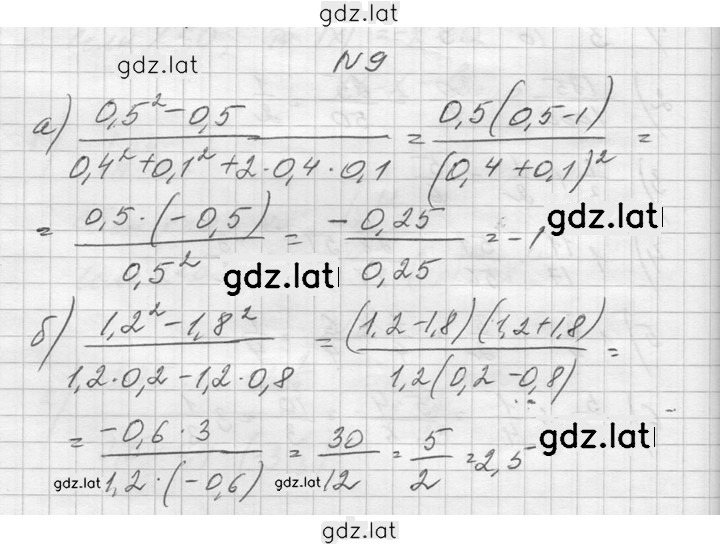 gdz.lat
№9
gdz.lat
а) (0,5² - 0,5) / (0,4² + 0,1² + 2·0,4·0,1) = 0,5(0,5-1) / (0,4+0,1)² =
= 0,5·(-0,5) / 0,5² = -0,25 / 0,25 = -1
gdz.lat gdz.lat
б) (1,2² - 1,8²) / (1,2·0,2 - 1,2·0,8) = (1,2-1,8)(1,2+1,8) / 1,2(0,2-0,8) =
= -0,6·3 / 1,2·(-0,6) = 30/12 = 5/2 = 2,5
gdz.lat gdz.lat gdz.lat
gdz.lat